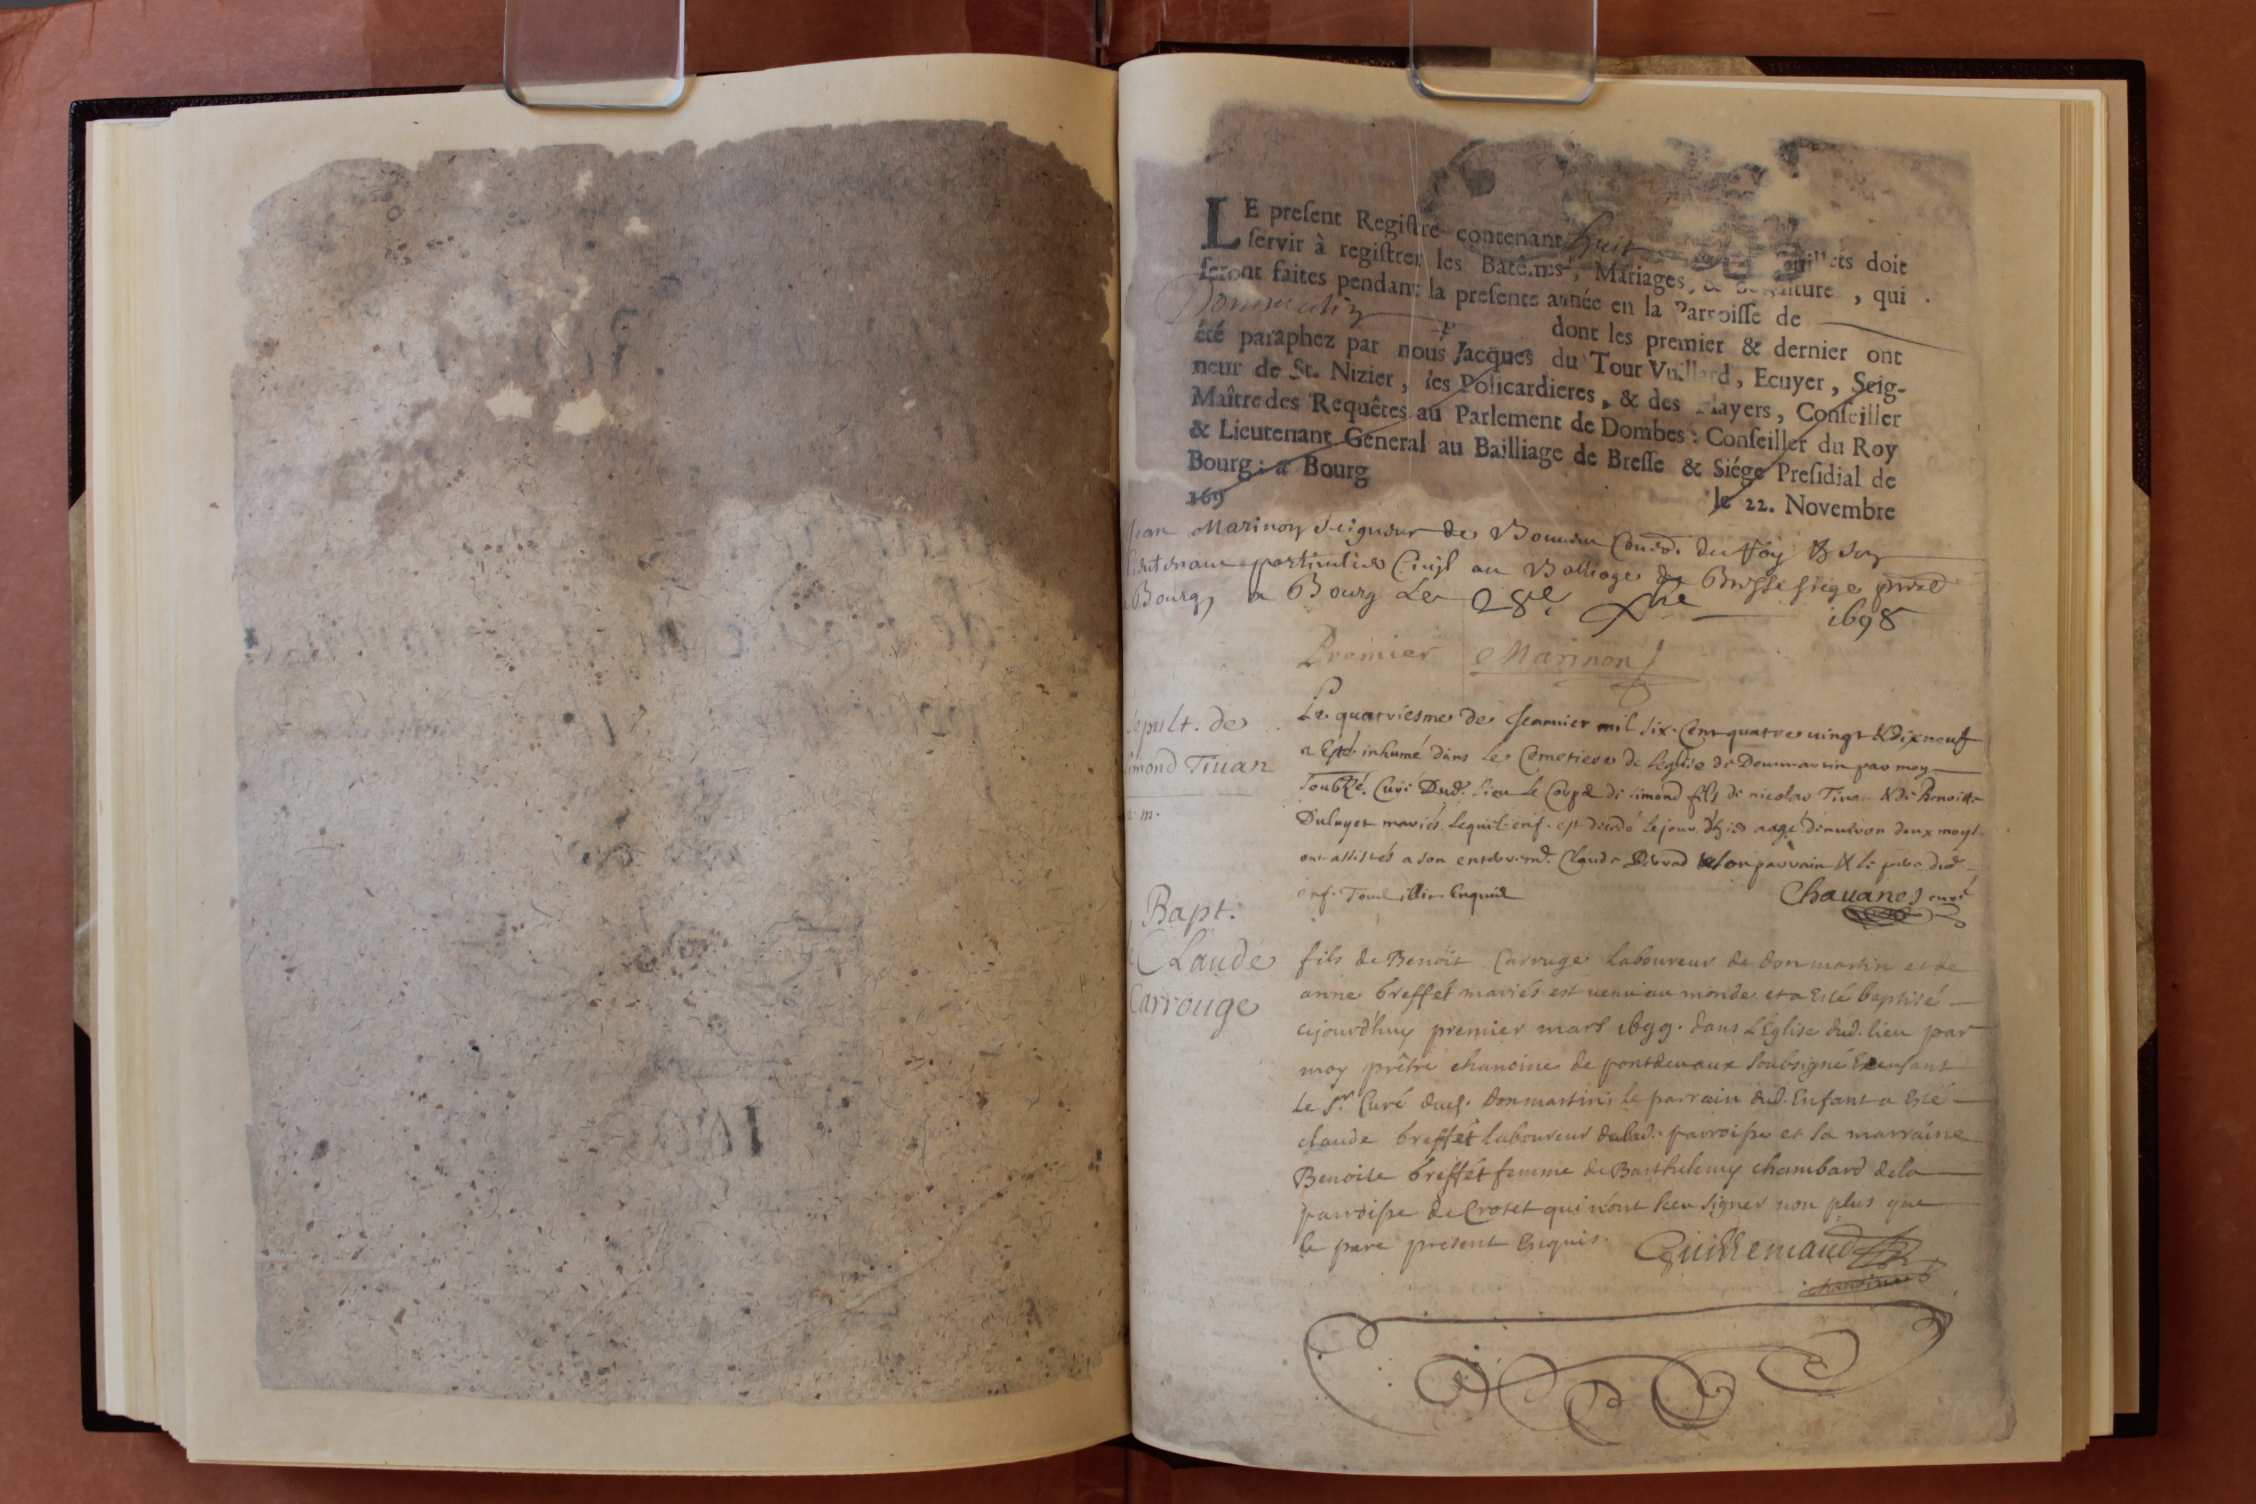 LE preſent Regiſtre contenant huit feuillets doit
ſervir à regiſtrer les Batêmes, Mariages, & Sepulture, qui
ſeront faites pendant la preſente année en la Parroiſſe de
Dommartin dont les premier & dernier ont
été paraphez par nous Jacques du Tour Vuillard, Ecuyer, Seig-
neur de St. Nizier, les Policardieres, & des Mayers, Conſeiller
Maître des Requêtes au Parlement de Dombes: Conſeiller du Roy
& Lieutenant General au Bailliage de Breſſe & Siége Preſidial de
Bourg: a Bourg le 22. Novembre
169
Jean Marinon Seigneur de du Roy & son
lieutenant particulier Civil au Balliage de Bresse siege
Bourg, a Bourg Le 28e xbre 1698
Premier Marinon
Sepult. de
simond Tiuan
Le quatriesme de Jeanuier mil six Cent quatre uingt & dix neuf
a Esté inhumé dans Le Cemetiere de l'eglise de Dommartin par moy
soubsé. Curé Dud. lieu Le Corps de simond fils de nicolas Tiuan & de Benoitte
Duluyer mariés lequel enf. est decedé le jour d'hier aagé d'enuiron deux moys
ont assistés a son enterremt. Claude son parrain & le pere dud.
enf. Tous illit. Enquis Chauanes curé
Bapt.
Claude
Carrouge
fils de Benoit Carruge Laboureur de donmartin et de
anne breffét mariés est uenu au monde et a Esté baptisé
ajourd'huy premier mars 1699. dans L'Eglise dud. lieu par
moy prêtre chanoine de pontdeuaux soubsigné
le sr. Curé dud. donmartin le parrain dud. Enfant a Esté
claude breffét laboureur delad. parroisse et la marraine
Benoite breffét femme de Barthelemy chambard de la
parroisse de Crotet qui n'ont sceu signer non plus que
le pere present Enquis. Guillemaud
chanoine